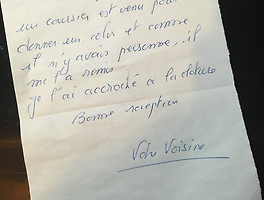 un coursier est venu pour
donner un colis et comme
il n'y avais personne, il
me l'a remis
je l'ai accroché a la cloture
Bonne reception
Votre Voisine